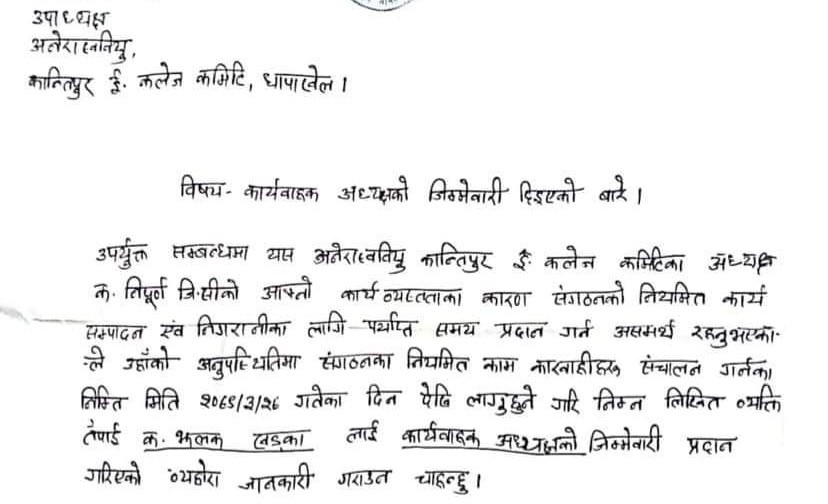 उपाध्यक्ष
अनेरास्ववियु,
कान्तिपुर ई. कलेज कमिटि, धापाखेल ।
विषय- कार्यवाहक अध्यक्षको जिम्मेवारी दिइएको बारे ।
उपर्युक्त सम्बन्धमा यस अनेरास्ववियु कान्तिपुर ई. कलेज कमिटिका अध्यक्ष
क. निपूर्ण जि.सीको आफ्नो कार्य व्यस्तताका कारण संगठनको नियमित कार्य
सम्पादन एंव निगरानीका लागि पर्याप्त समय प्रदान गर्न असमर्थ रहनुभएका-
ले उहाँको अनुपस्थितिमा संगठनका नियमित काम कारवाहीहरू संचालन गर्नका
निम्ति मिति २०६९/३/२६ गतेका दिन देखि लागुहुने गरि निम्न लिखित व्यक्ति
तपाई क. झलक खड्का लाई कार्यवाहक अध्यक्षको जिम्मेवारी प्रदान
गरिएको व्यहोरा जानकारी गराउन चाहन्छु ।